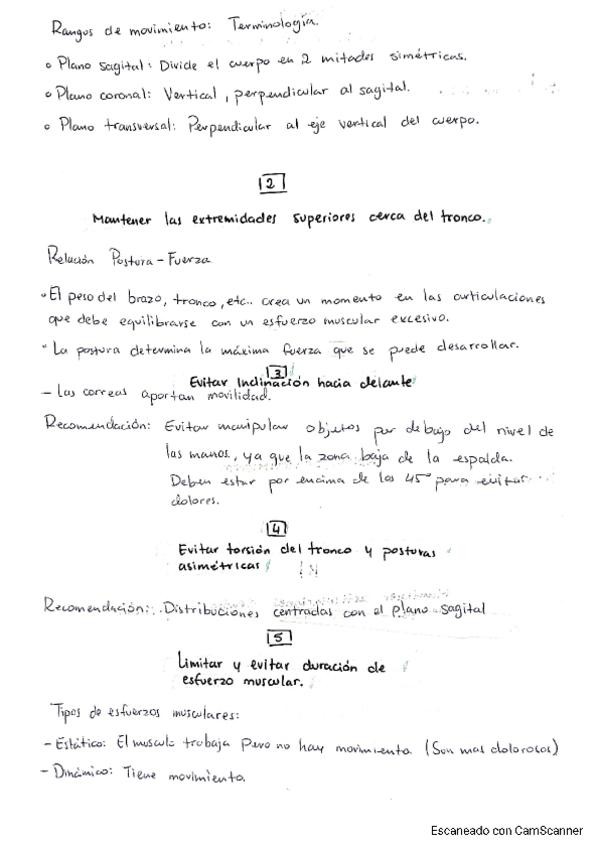 Rangos de movimiento: Terminología.
• Plano sagital: Divide el cuerpo en 2 mitades simétricas.
• Plano coronal: Vertical, perpendicular al sagital.
• Plano transversal: Perpendicular al eje vertical del cuerpo.
2
Mantener las extremidades superiores cerca del tronco.
Relación Postura - Fuerza
• El peso del brazo, tronco, etc.. crea un momento en las articulaciones
que debe equilibrarse con un esfuerzo muscular excesivo.
• La postura determina la máxima fuerza que se puede desarrollar.
3
Evitar Inclinación hacia delante
- Las correas aportan movilidad.
Recomendación: Evitar manipular objetos por debajo del nivel de
las manos, ya que la zona baja de la espalda.
Deben estar por encima de los 45° para evitar
dolores.
4
Evitar torsión del tronco y posturas
asimétricas
Recomendación: Distribuciones centradas con el plano sagital
5
Limitar y evitar duración de
esfuerzo muscular.
Tipos de esfuerzos musculares:
- Estático: El musculo trabaja pero no hay movimiento. (Son mas dolorosos)
- Dinámico: Tiene movimiento.
Escaneado con CamScanner